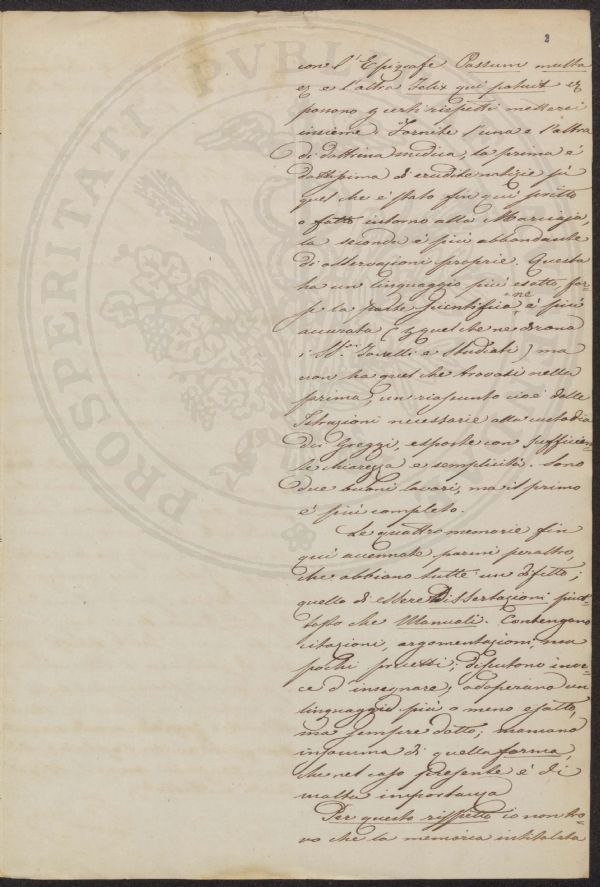 3
con l'Epigrafe Possum multa
et e l'altra Felix qui potuit
ponono questi rispetti mettersi
insieme. Fornite l'una e l'altra
di dottrina medica, la prima è
dottissima di erudite notizie di
quel che è stato fin qui scritto
o fatto intorno alla Moriccia,
la seconda è più abbondante
di osservazioni proprie. Questa
ha un linguaggio più esatto, for-
se la parte scientifica ne è più
accurata (e quel che ne dirono
i Sig.ri Tonelli e Studiati) ma
non ha quel che trovasi nella
prima, un riassunto cioè delle
Istruzioni necessarie alla custodia
dei Greggi, esposte con sufficien-
te chiarezza e semplicità. Sono
due buoni lavori, ma il primo
è più completo.
Le quattro memorie fin
qui accennate, parmi peraltro,
che abbiano tutte un difetto;
quello di essere Dissertazioni piut-
tosto che Manuali. Contengono
citazioni, argomentazioni, ma
pochi precetti; disputono inve-
ce d'insegnare; adoperano un
linguaggio più o meno esatto,
ma sempre dotto; mancano
insomma di quella forma,
che nel caso presente è di
molta importanza
Per questo rispetto io non tro-
vo che la memoria intitolata
PROSPERITATI PVBLI